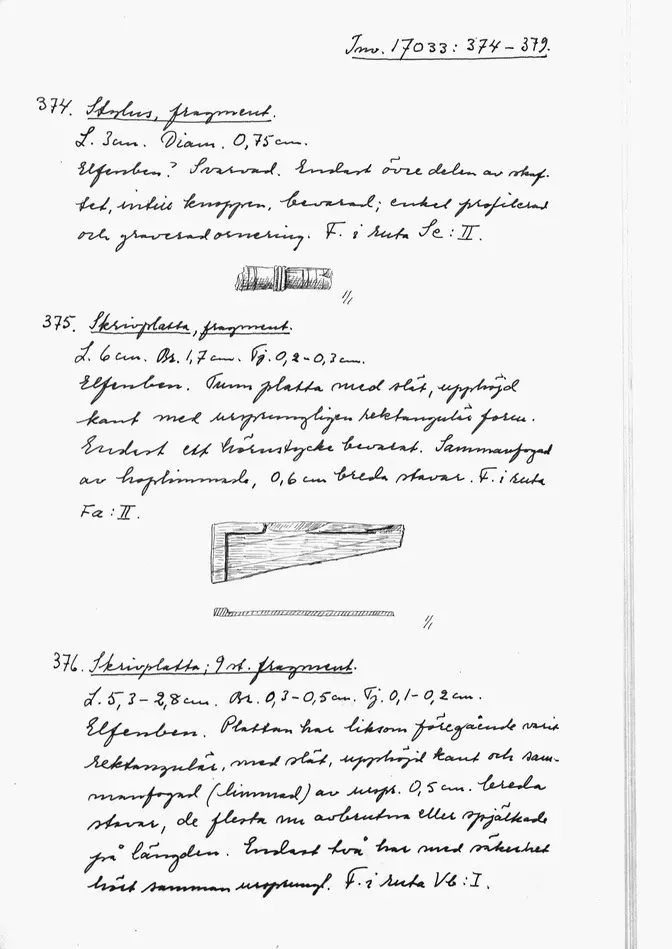 Inv. 17033: 374 – 379.
374. Stylus, fragment.
L. 3 cm. Diam. 0,75 cm.
Elfenben? Svarvad. Endast övre delen av skaf-
tet, intill knoppen, bevarad; enkel profilerad
och graverad ornering. F. i ruta Se : II.
1/1
375. Skrivplatta, fragment.
L. 6 cm. Br. 1,7 cm. Tj. 0,2 – 0,3 cm.
Elfenben. Tunn platta med slät, upphöjd
kant med ursprungligen rektangulär form.
Endast ett hörnstycke bevarat. Sammanfogad
av hoplimmade, 0,6 cm breda stavar. F. i ruta
Fa : II.
1/1
376. Skrivplatta; 9 st. fragment.
L. 5,3 – 2,8 cm. Br. 0,3 – 0,5 cm. Tj. 0,1 – 0,2 cm.
Elfenben. Plattan har liksom föregående varit
rektangulär, med slät, upphöjd kant och sam-
manfogad (limmad) av urspr. 0,5 cm. breda
stavar, de flesta nu avbrutna eller spjälkade
på längden. Endast två har med säkerhet
hört samman ursprungl. F. i ruta Vb : I.